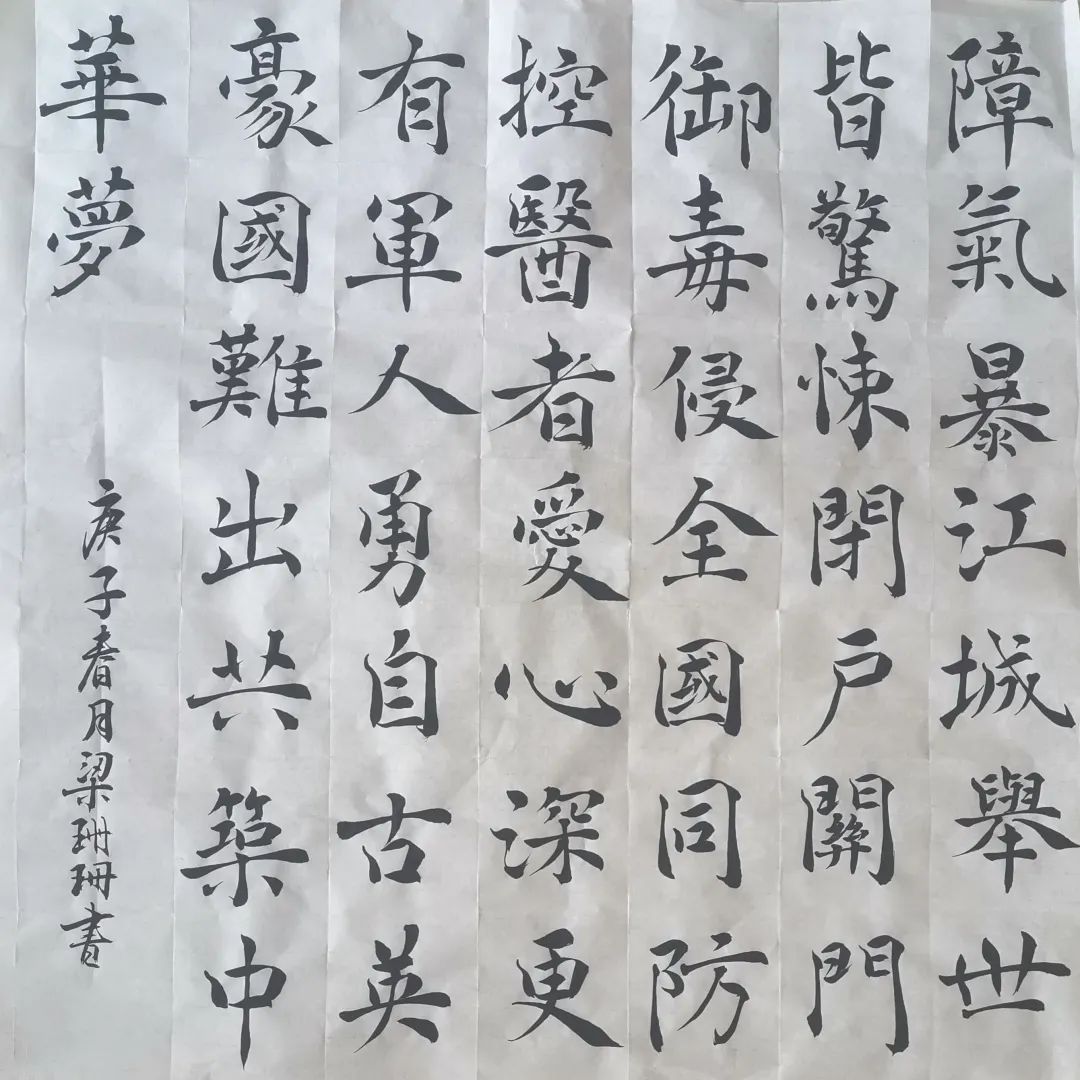 障氣暴江城舉世
皆驚悚閉戶關門
御毒侵全國同防
控醫者愛心深更
有軍人勇自古英
豪國難出共築中
華夢
庚子春月梁珊珊書